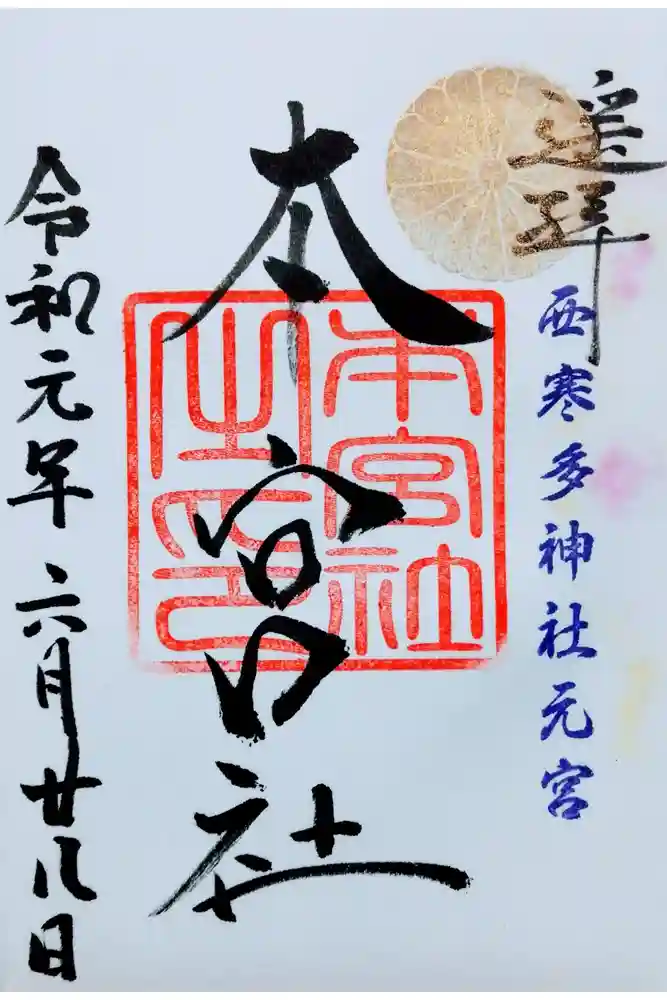 遥拝
西寒多神社元宮
本宮社
本宮社
之印
令和元年六月廿八日